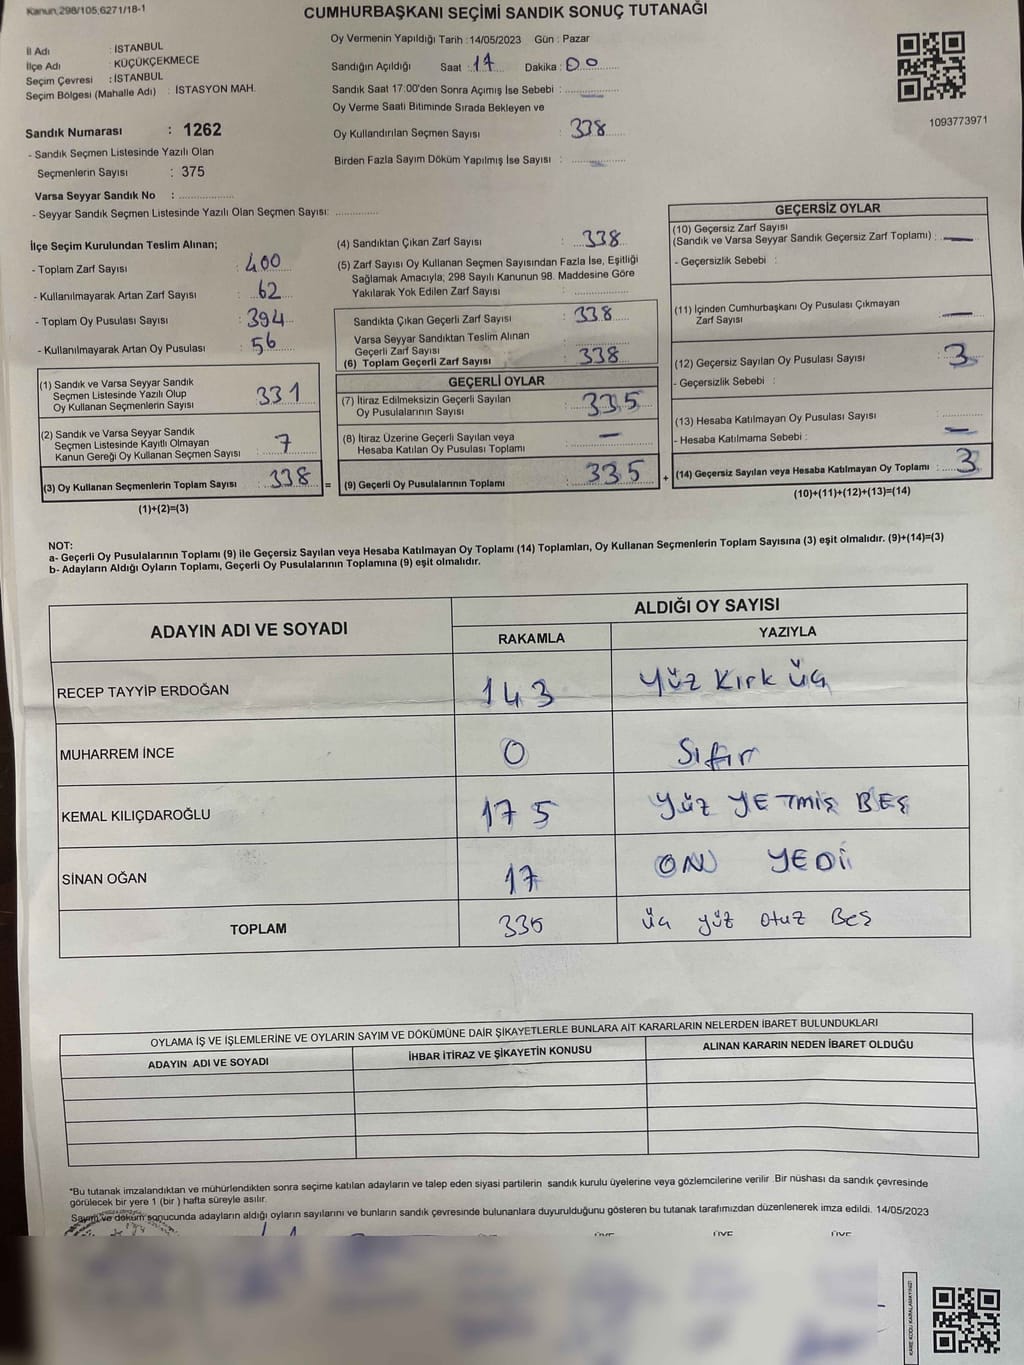 Kanun,298/105,6271/18-1
CUMHURBAŞKANI SEÇİMİ SANDIK SONUÇ TUTANAĞI
İl Adı : İSTANBUL
İlçe Adı : KÜÇÜKÇEKMECE
Seçim Çevresi : İSTANBUL
Seçim Bölgesi (Mahalle Adı) : İSTASYON MAH.
Sandık Numarası : 1262
- Sandık Seçmen Listesinde Yazılı Olan
Seçmenlerin Sayısı : 375
Varsa Seyyar Sandık No : ..................
- Seyyar Sandık Seçmen Listesinde Yazılı Olan Seçmen Sayısı: ..............
Oy Vermenin Yapıldığı Tarih :14/05/2023 Gün : Pazar
Sandığın Açıldığı Saat : 17 Dakika : 00
Sandık Saat 17:00'den Sonra Açımış İse Sebebi :
Oy Verme Saati Bitiminde Sırada Bekleyen ve
Oy Kullandırılan Seçmen Sayısı : 338
Birden Fazla Sayım Döküm Yapılmış İse Sayısı :
1093773971
İlçe Seçim Kurulundan Teslim Alınan;
- Toplam Zarf Sayısı : 400
- Kullanılmayarak Artan Zarf Sayısı : 62
- Toplam Oy Pusulası Sayısı : 394
- Kullanılmayarak Artan Oy Pusulası : 56
(1) Sandık ve Varsa Seyyar Sandık
Seçmen Listesinde Yazılı Olup
Oy Kullanan Seçmenlerin Sayısı : 331
(2) Sandık ve Varsa Seyyar Sandık
Seçmen Listesinde Kayıtlı Olmayan
Kanun Gereği Oy Kullanan Seçmen Sayısı : 7
(3) Oy Kullanan Seçmenlerin Toplam Sayısı : 338 =
(1)+(2)=(3)
(4) Sandıktan Çıkan Zarf Sayısı : 338
(5) Zarf Sayısı Oy Kullanan Seçmen Sayısından Fazla İse, Eşitliği
Sağlamak Amacıyla; 298 Sayılı Kanunun 98. Maddesine Göre
Yakılarak Yok Edilen Zarf Sayısı : ..................
Sandıkta Çıkan Geçerli Zarf Sayısı : 338
Varsa Seyyar Sandıktan Teslim Alınan
Geçerli Zarf Sayısı :
(6) Toplam Geçerli Zarf Sayısı : 338
GEÇERLİ OYLAR
(7) İtiraz Edilmeksizin Geçerli Sayılan
Oy Pusulalarının Sayısı : 335
(8) İtiraz Üzerine Geçerli Sayılan veya
Hesaba Katılan Oy Pusulası Toplamı : —
(9) Geçerli Oy Pusulalarının Toplamı : 335 +
GEÇERSİZ OYLAR
(10) Geçersiz Zarf Sayısı
(Sandık ve Varsa Seyyar Sandık Geçersiz Zarf Toplamı) : —
- Geçersizlik Sebebi :
(11) İçinden Cumhurbaşkanı Oy Pusulası Çıkmayan
Zarf Sayısı : —
(12) Geçersiz Sayılan Oy Pusulası Sayısı : 3
- Geçersizlik Sebebi :
(13) Hesaba Katılmayan Oy Pusulası Sayısı : ..............
- Hesaba Katılmama Sebebi : —
(14) Geçersiz Sayılan veya Hesaba Katılmayan Oy Toplamı : 3
(10)+(11)+(12)+(13)=(14)
NOT:
a- Geçerli Oy Pusulalarının Toplamı (9) ile Geçersiz Sayılan veya Hesaba Katılmayan Oy Toplamı (14) Toplamları, Oy Kullanan Seçmenlerin Toplam Sayısına (3) eşit olmalıdır. (9)+(14)=(3)
b- Adayların Aldığı Oyların Toplamı, Geçerli Oy Pusulalarının Toplamına (9) eşit olmalıdır.
ADAYIN ADI VE SOYADI
ALDIĞI OY SAYISI
RAKAMLA YAZIYLA
RECEP TAYYİP ERDOĞAN 143 Yüz Kırk üç
MUHARREM İNCE 0 Sıfır
KEMAL KILIÇDAROĞLU 175 Yüz YETMİŞ BEŞ
SİNAN OĞAN 17 ON YEDİ
TOPLAM 335 üç yüz otuz Beş
OYLAMA İŞ VE İŞLEMLERİNE VE OYLARIN SAYIM VE DÖKÜMÜNE DAİR ŞİKAYETLERLE BUNLARA AİT KARARLARIN NELERDEN İBARET BULUNDUKLARI
ADAYIN ADI VE SOYADI İHBAR İTİRAZ VE ŞİKAYETİN KONUSU ALINAN KARARIN NEDEN İBARET OLDUĞU
*Bu tutanak imzalandıktan ve mühürlendikten sonra seçime katılan adayların ve talep eden siyasi partilerin sandık kurulu üyelerine veya gözlemcilerine verilir .Bir nüshası da sandık çevresinde
görülecek bir yere 1 (bir ) hafta süreyle asılır.
Sayım ve döküm sonucunda adayların aldığı oyların sayılarını ve bunların sandık çevresinde bulunanlara duyurulduğunu gösteren bu tutanak tarafımızdan düzenlenerek imza edildi. 14/05/2023
ÜYE ÜYE ÜYE
KARE KODU KARALAMAYINIZ!